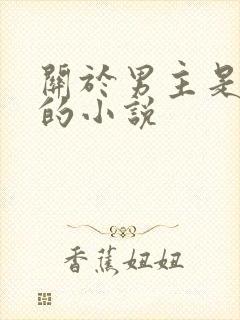 關於男主是
的小說
香蕉妞妞